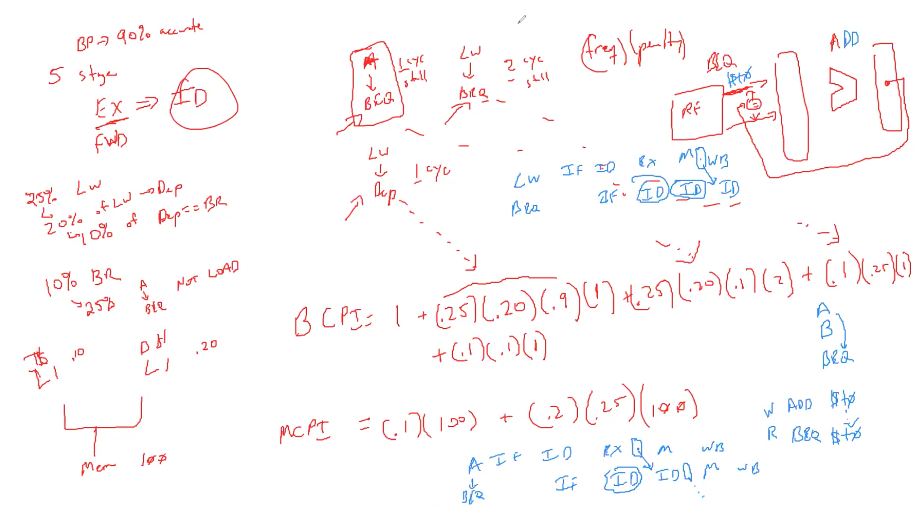 BP → 90% accurate
5 stage
EX ⇒ ID
FWD
25% LW
↳ 20% of LW → Dep
↳ 10% of Dep == BR
10% BR
→ 25% A ↓ BEQ NOT LOAD
I$ L1 .10
D$ L1 .20
Mem 100
A ↓ BEQ 1 cyc stall
LW ↓ BEQ 2 cyc stall
LW ↓ Dep 1 cyc
(freq)(penlty)
BEQ
$t0
RF
ADD
LW IF ID EX M WB
BEQ IF ID ID ID
BCPI = 1 + (.25)(.20)(.9)(1) + (.25)(.20)(.1)(2) + (.1)(.25)(1)
+ (.1)(.1)(1)
A
B
BEQ
MCPI = (.1)(100) + (.2)(.25)(100)
W ADD $t0
R BEQ $t0
A IF ID EX M WB
↓
BEQ IF ID ID M WB